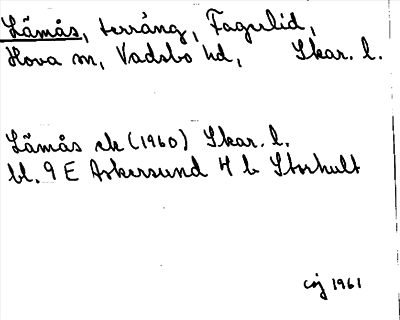 Låmås, terräng, Fagerlid,
Hova sn, Vadsbo hd, Skar. l.
Låmås ek (1960) Skar. l.
bl. 9 E Askersund H b Storhult
1961